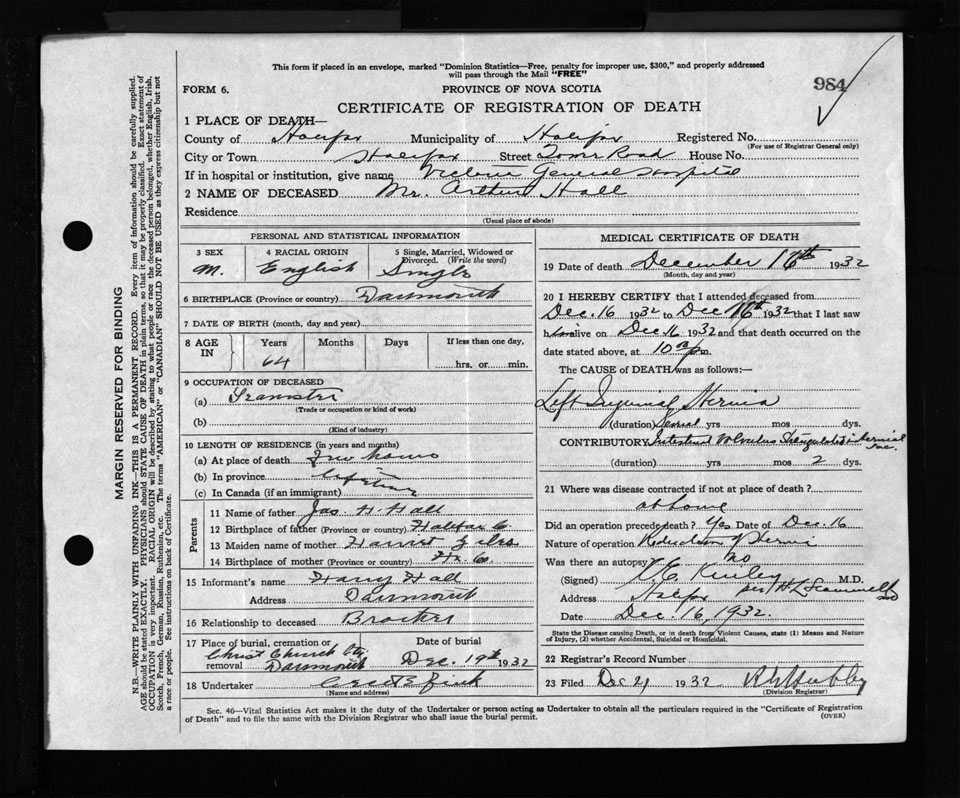 This form if placed in an envelope, marked "Dominion Statistics—Free, penalty for improper use, $300," and properly addressed
will pass through the Mail "FREE"
984
FORM 6.
PROVINCE OF NOVA SCOTIA
CERTIFICATE OF REGISTRATION OF DEATH
1 PLACE OF DEATH—
County of Halifax Municipality of Halifax Registered No.
(For use of Registrar General only)
City or Town Halifax Street Tower Road House No.
If in hospital or institution, give name Victoria General Hospital
2 NAME OF DECEASED Mr. Arthur Hall
Residence
(Usual place of abode)
PERSONAL AND STATISTICAL INFORMATION
3 SEX 4 RACIAL ORIGIN 5 Single, Married, Widowed or
Divorced. (Write the word)
M. English Single
6 BIRTHPLACE (Province or country) Dartmouth
7 DATE OF BIRTH (month, day and year)
8 AGE IN Years Months Days If less than one day,
64
hrs. or min.
9 OCCUPATION OF DECEASED
(a) Teamster
(Trade or occupation or kind of work)
(b)
(Kind of industry)
10 LENGTH OF RESIDENCE (in years and months)
(a) At place of death Few hours
(b) In province Lifetime
(c) In Canada (if an immigrant)
Parents
11 Name of father Jas. H. Hall
12 Birthplace of father (Province or country) Halifax Co.
13 Maiden name of mother Harriet
14 Birthplace of mother (Province or country) Hx. Co.
15 Informant's name Harry Hall
Address Dartmouth
16 Relationship to deceased Brother
17 Place of burial, cremation or removal Date of burial
Christ Church Cty. Dartmouth Dec. 19th 1932
18 Undertaker
(Name and address)
MEDICAL CERTIFICATE OF DEATH
19 Date of death December 16th 1932
(Month, day and year)
20 I HEREBY CERTIFY that I attended deceased from
Dec. 16 1932 to Dec 16th 1932 that I last saw
him alive on Dec. 16 1932 and that death occurred on the
date stated above, at 10 pm.
The CAUSE of DEATH was as follows:—
Left Inguinal Hernia
(duration) Several yrs mos dys.
CONTRIBUTORY Intestinal Volvulus Strangulated in hernial sac.
(duration) yrs mos 2 dys.
21 Where was disease contracted if not at place of death?
at home
Did an operation precede death? Yes Date of Dec. 16
Nature of operation Reduction of Hernia
Was there an autopsy? No
(Signed) C E Kinley M.D.
Address Halifax per H L Scammell
Date Dec. 16, 1932
State the Disease causing Death, or in death from Violent Causes, state (1) Means and Nature
of Injury, (2) whether Accidental, Suicidal or Homicidal.
22 Registrar's Record Number
23 Filed Dec 21 1932
(Division Registrar)
Sec. 46—Vital Statistics Act makes it the duty of the Undertaker or person acting as Undertaker to obtain all the particulars required in the "Certificate of Registration
of Death" and to file the same with the Division Registrar who shall issue the burial permit.
(OVER)
MARGIN RESERVED FOR BINDING
N.B.—WRITE PLAINLY WITH UNFADING INK—THIS IS A PERMANENT RECORD. Every item of information should be carefully supplied.
AGE should be stated EXACTLY. PHYSICIANS should STATE CAUSE OF DEATH in plain terms, so that it may be properly classified. Exact statement of
OCCUPATION is very important. RACIAL ORIGIN will be described by stating to what people or race the deceased person belonged, whether English, Irish,
Scotch, French, German, Russian, Ruthenian, etc. The terms "AMERICAN" or "CANADIAN" SHOULD NOT BE USED as they express citizenship but not
a race or people. See instructions on back of Certificate.